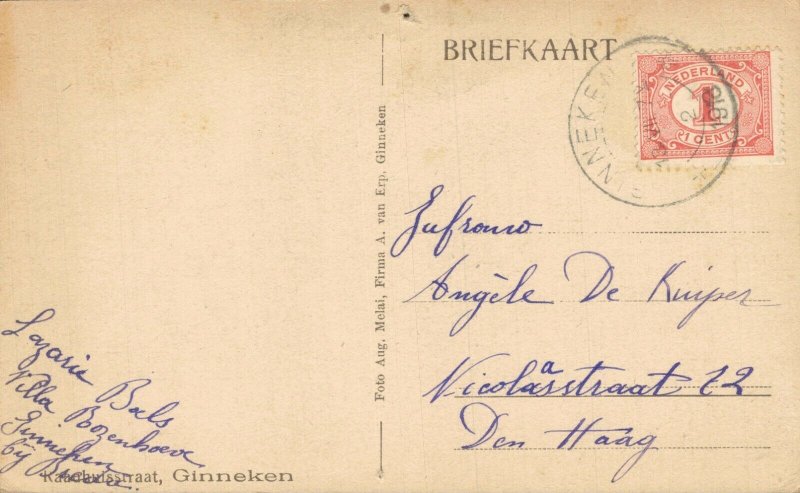 BRIEFKAART
GINNEKEN
NEDERLAND
1
1 CENT
Jufrouw
Angèle De Kuiper
Nicolaasstraat 72
Den Haag
Foto Aug. Melai, Firma A. van Erp, Ginneken
Lazarie Bals
Villa Rozenhoeve
Ginneken
bij Breda.
Raadhuisstraat, Ginneken